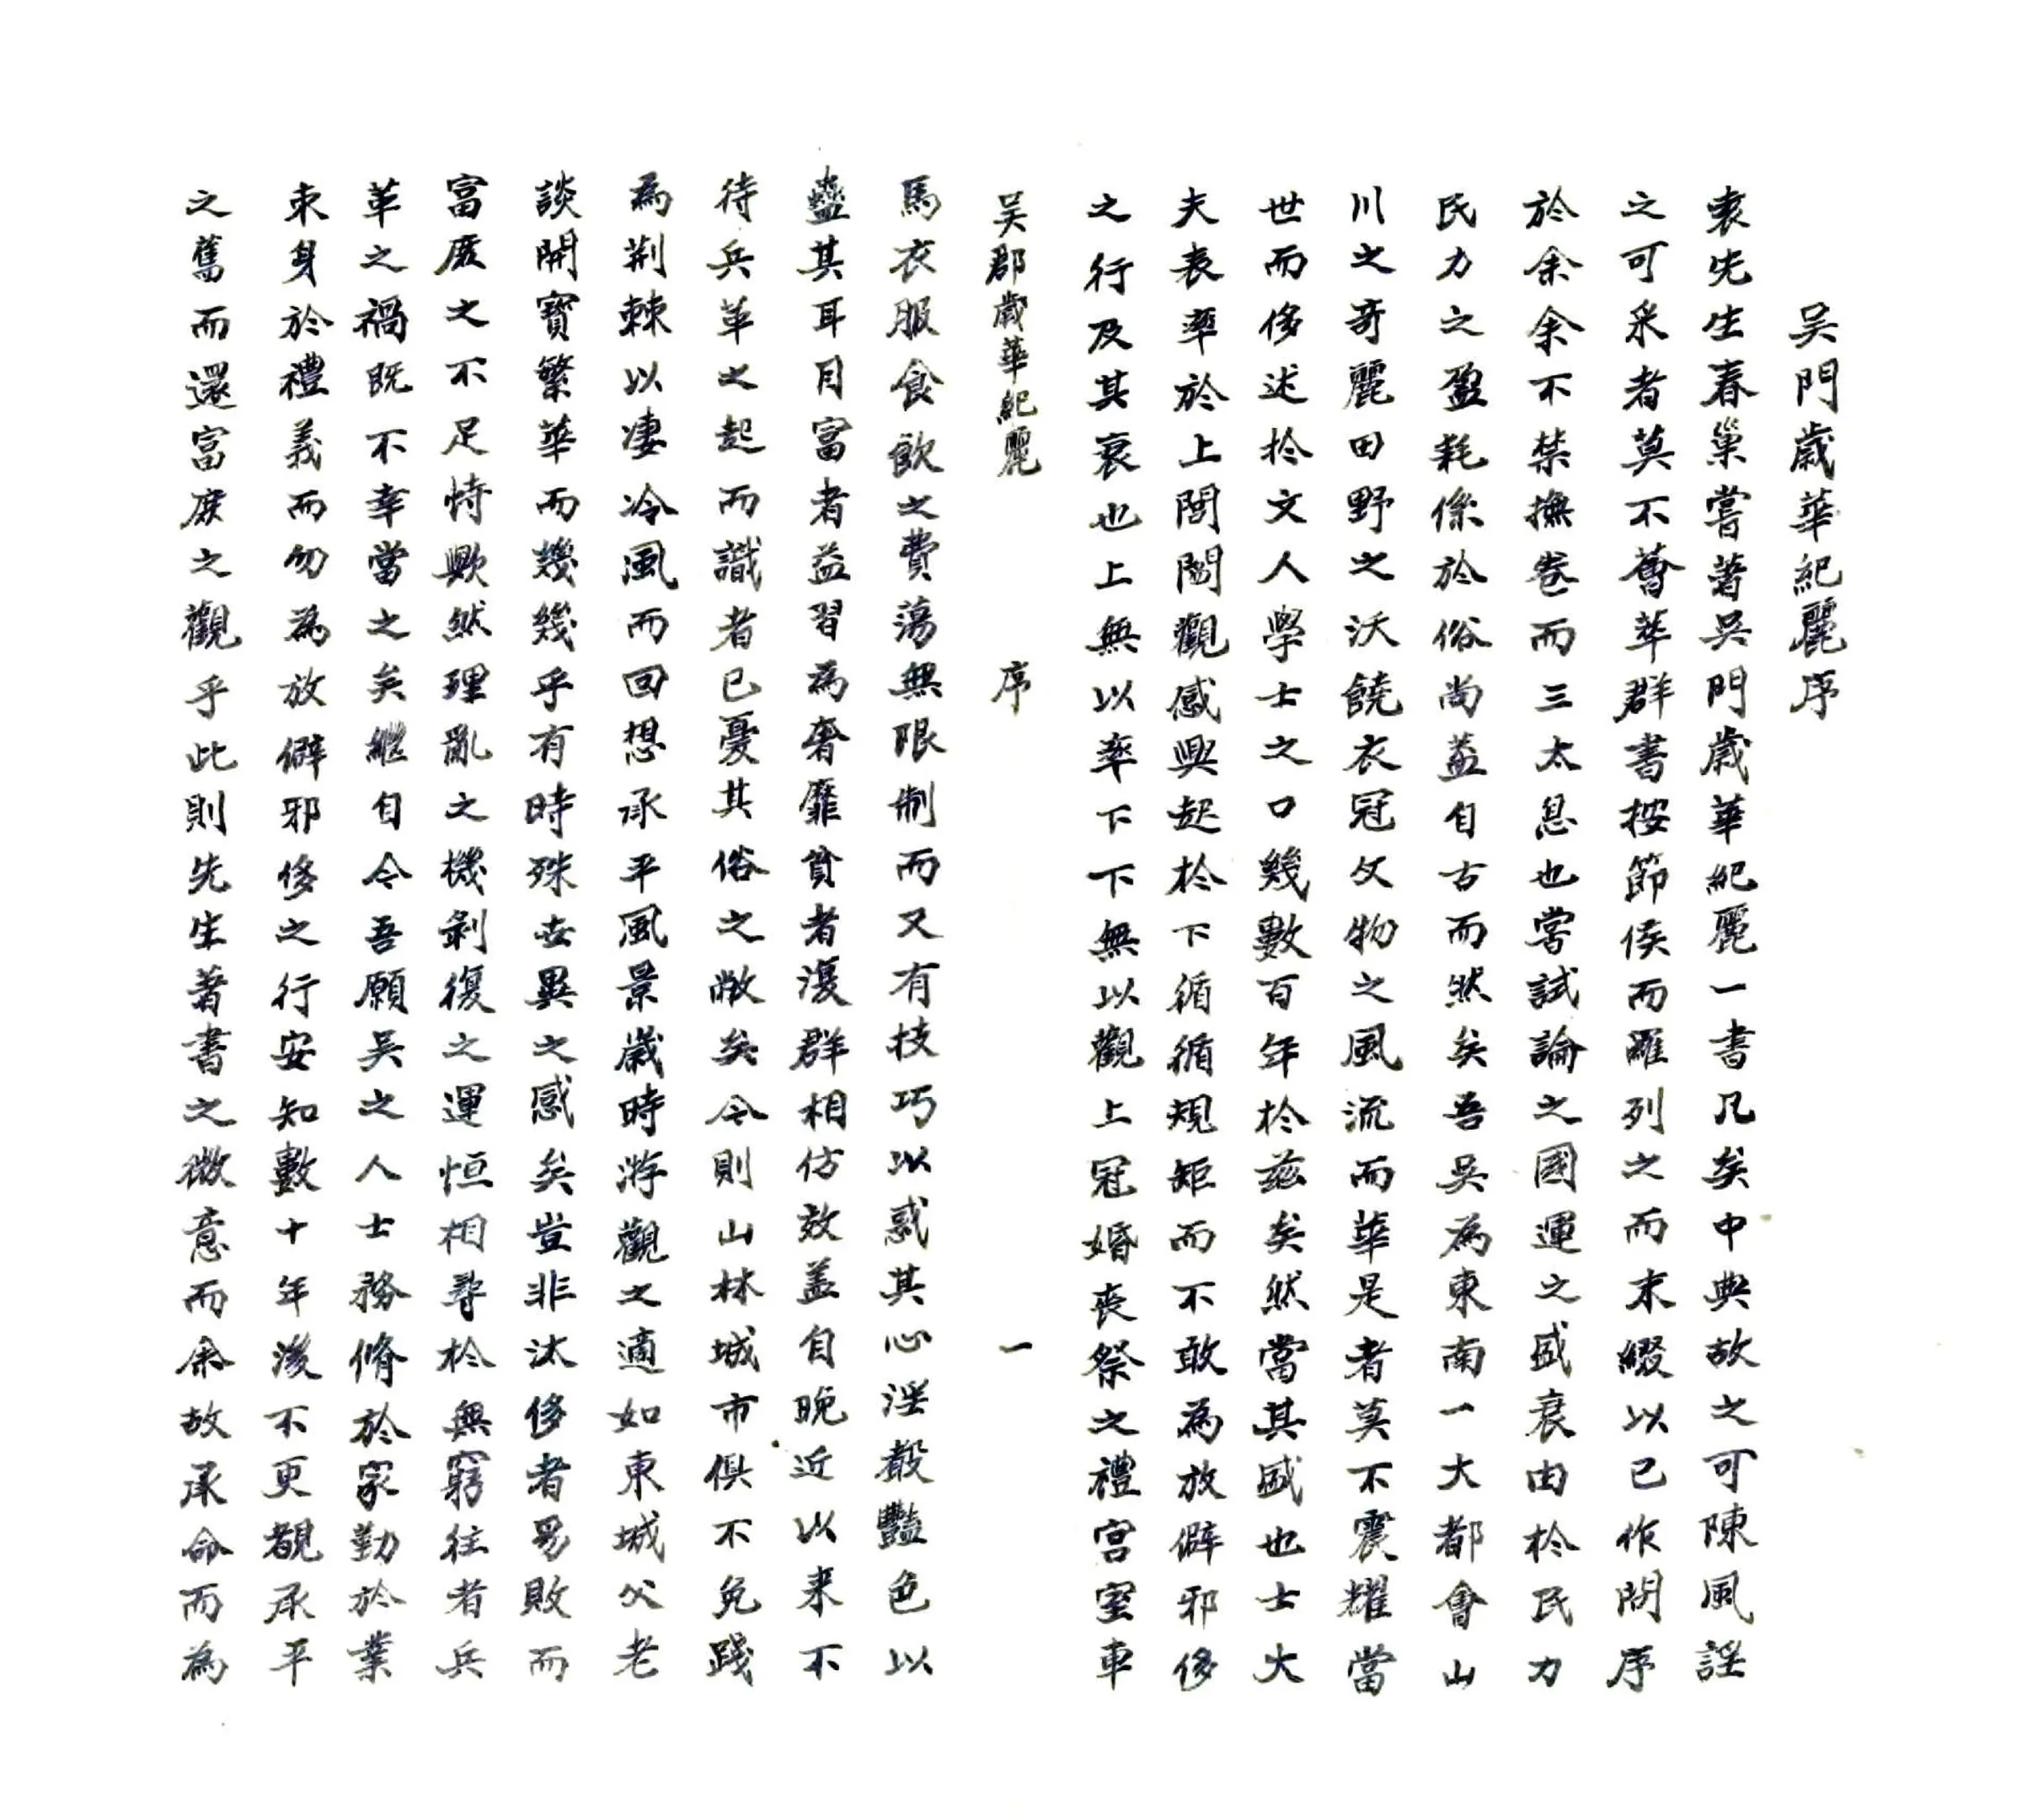 吴門歲華紀麗序
袁先生春巢嘗著吴門歲華紀麗一書凡矣中典故之可陳風謡
之可采者莫不薈萃群書按節侯而羅列之而末綴以已作問序
於余余不禁撫卷而三太息也嘗試論之國運之盛衰由於民力
民力之盈耗係於俗尚盖自古而然矣吾吴為東南一大都會山
川之奇麗田野之沃饒衣冠文物之風流而華是者莫不震耀當
世而侈述扵文人學士之口幾數百年扵兹矣然當其盛也士大
夫表率於上閭閻觀感興起扵下循循規矩而不敢為放僻邪侈
之行及其衰也上無以率下下無以觀上冠婚喪祭之禮宫室車
吴郡歲華紀麗 序 一
馬衣服食飲之費蕩無限制而又有技巧以惑其心淫聲豔色以
蠱其耳目富者益習為奢靡貧者復群相仿效盖自晚近以来不
待兵革之起而識者已憂其俗之敝矣今則山林城市俱不免踐
為荆棘以凄冷風而回想承平風景歲時游觀之適如東城父老
談開寳繁華而幾幾乎有時殊世異之感矣豈非汰侈者易敗而
富庶之不足恃歟然理亂之機剥復之運恒相尋扵無窮往者兵
革之禍既不幸當之矣繼自今吾願吴之人士務脩於家勤於業
束身於禮義而勿為放僻邪侈之行安知數十年後不更覩承平
之舊而還富庶之觀乎此則先生著書之微意而余故承命而為